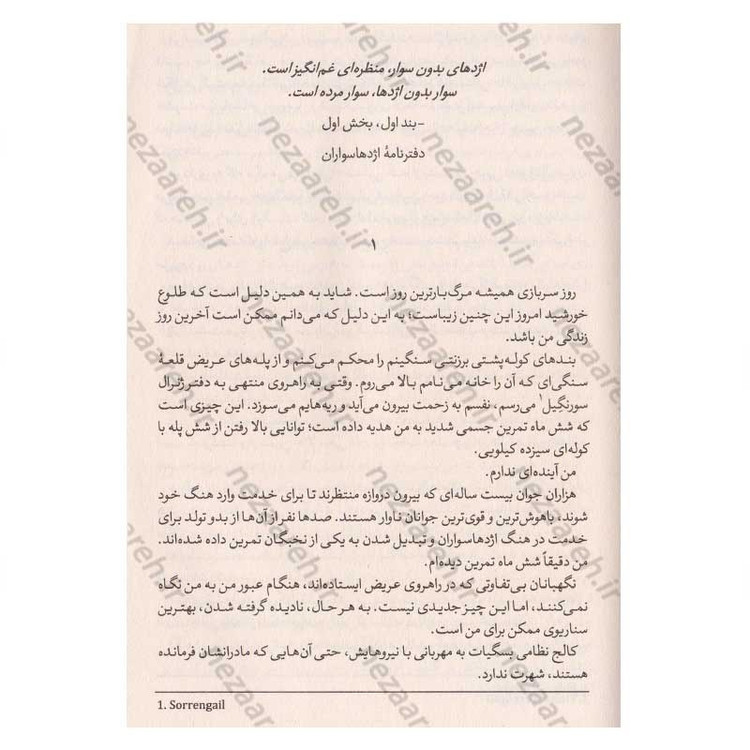 اژدهای بدون سوار، منظره‌ای غم‌انگیز است.
سوار بدون اژدها، سوار مرده است.
-بند اول، بخش اول
دفترنامهٔ اژدهاسواران
۱
روز سربازی همیشه مرگ‌بارترین روز است. شاید به همین دلیل است که طلوع
خورشید امروز این چنین زیباست؛ به این دلیل که می‌دانم ممکن است آخرین روز
زندگی من باشد.
بندهای کوله‌پشتی برزنتی سنگینم را محکم می‌کنم و از پله‌های عریض قلعهٔ
سنگی‌ای که آن را خانه می‌نامم بالا می‌روم. وقتی به راهروی منتهی به دفتر ژنرال
سورنگیل۱ می‌رسم، نفسم به زحمت بیرون می‌آید و ریه‌هایم می‌سوزد. این چیزی است
که شش ماه تمرین جسمی شدید به من هدیه داده است؛ توانایی بالا رفتن از شش پله با
کوله‌ای سیزده کیلویی.
من آینده‌ای ندارم.
هزاران جوان بیست ساله‌ای که بیرون دروازه منتظرند تا برای خدمت وارد هنگ خود
شوند، باهوش‌ترین و قوی‌ترین جوانان ناوار هستند. صدها نفر از آن‌ها از بدو تولد برای
خدمت در هنگ اژدهاسواران و تبدیل شدن به یکی از نخبگان تمرین داده شده‌اند.
من دقیقاً شش ماه تمرین دیده‌ام.
نگهبانان بی‌تفاوتی که در راهروی عریض ایستاده‌اند، هنگام عبور من به من نگاه
نمی‌کنند، اما این چیز جدیدی نیست. به هر حال، نادیده گرفته شدن، بهترین
سناریوی ممکن برای من است.
کالج نظامی بسگیات به مهربانی با نیروهایش، حتی آن‌هایی که مادرانشان فرمانده
هستند، شهرت ندارد.
1. Sorrengail
nezaareh.ir